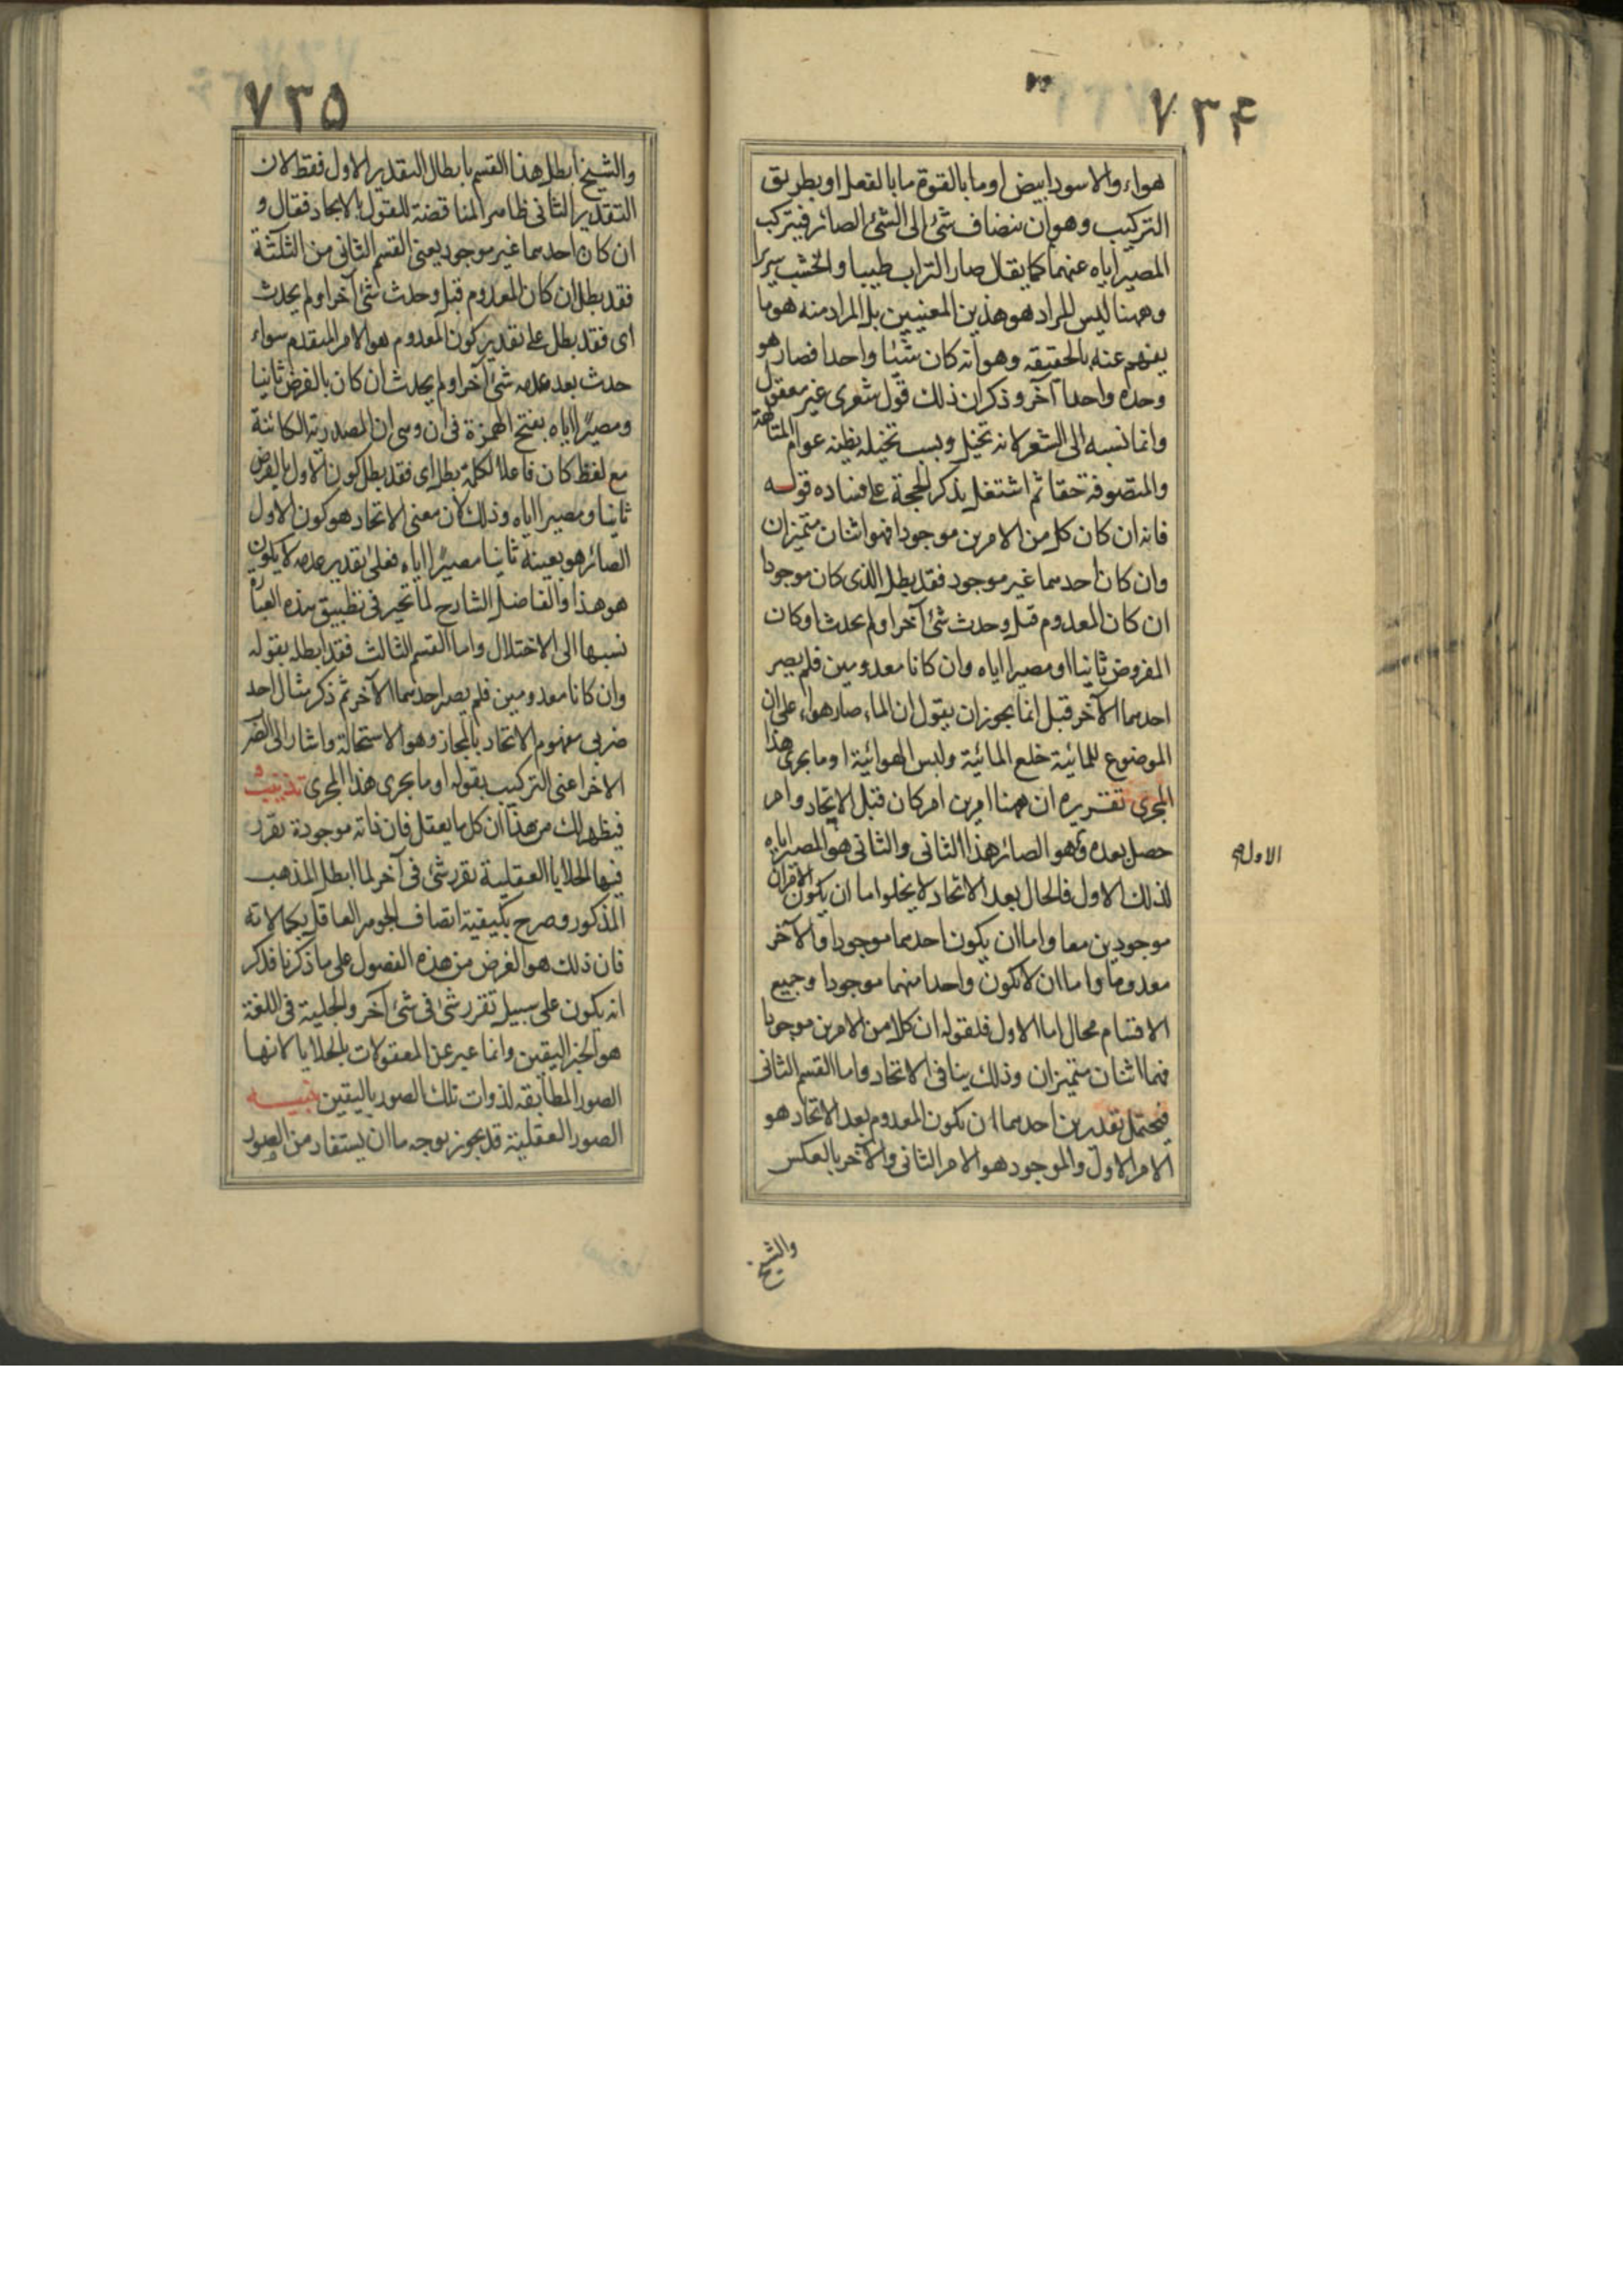 ٧٣۴
هواء والاسود ابيض او ما بالقوة ما بالفعل او بطريق
التركيب وهو ان ينضاف شئ الى الشئ الصائر فيتركب
المصير اياه عنهما كما يقال صار التراب طينا والخشب سريرا
وههنا ليس المراد هو هذين المعنيين بل المراد منه هو ما
يفهم عنه بالحقيقه وهو انه كان شيئا واحدا فصار هو
وحده واحدا آخر وذكر ان ذلك قول شعرى غير معقول
وانما نسبه الى الشعر لانه تخيل وبسبب تخيله يظنه عوام المتألهة
والمتصوفة حقا ثم اشتغل بذكر الحجة على فساده قوله
فانه ان كان كل من الامرين موجودا فهو اثنان متميزان
وان كان احدهما غير موجود فقد بطل الذى كان موجودا
ان كان المعدوم قبل وحدث شئ آخر او لم يحدث او كان
المفروض ثانيا او مصيرا اياه وان كانا معدومين فلم يصر
احدهما الآخر قبل انما يجوز ان يقول ان الماء صار هواء على ان
الموضوع للمائية خلع المائية ولبس الهوائية او ما يجرى هذا
المجرى تقريره ان ههنا امرين امر كان قبل الاتحاد وامر
حصل بعده وهو الصائر هذا الثانى والثانى هو المصير اياه
الاول
لذلك الاول فالحال بعد الاتحاد لا يخلوا ما ان يكون الامران
موجودين معا واما ان يكون احدهما موجودا والآخر
معدوما واما ان لا يكون واحدا منهما موجودا وجميع
الاقسام محال اما الاول فلقوله ان كلا من الامرين موجودا
فهما اثنان متميزان وذلك ينافى الاتحاد واما القسم الثانى
فيحتمل تقديرين احدهما ان يكون المعدوم بعد الاتحاد هو
الامر الاول والموجود هو الامر الثانى والآخر بالعكس
والشيخ
٧٣۵
والشيخ ابطل هذا القسم بابطال التقدير الاول فقط لان
التقدير الثانى ظاهر المناقضة للقول بالاتحاد فقال و
ان كان احدهما غير موجود يعنى القسم الثانى من الثلثة
فقد بطل ان كان المعدوم قبل وحدث شئ آخر او لم يحدث
اى فقد بطل على تقدير كون المعدوم هو الامر المتقدم سواء
حدث بعد عدمه شئ آخر او لم يحدث ان كان بالفرض ثانيا
ومصيرًا اياه بفتح الهمزة فى ان وهى ان المصدرية الكائنة
مع لفظ كان فاعلا لكلمة بطل اى فقد بطل كون الاول بالفرض
ثانيا ومصيرا اياه وذلك لان معنى الاتحاد هو كون الاول
الصائر هو بعينه ثانيا مصيرًا اياه فعلى تقدير عدمه لا يكون
هو هذا والفاضل الشارح لما تحير فى تطبيق هذه العبارة
نسبها الى الاختلال واما القسم الثالث فقد ابطله بقوله
وان كانا معدومين فلم يصر احدهما الآخر ثم ذكر مثال احد
ضربى مفهوم الاتحاد بالمجاز وهو الاستحالة واشار الى الضرب
الاخر اعنى التركيب بقوله او ما يجرى هذا المجرى تذنيب
فيظهر لك من هذا ان كل ما يعقل فان ذاته موجودة تقرر
فيها الجلايا العقلية تقرر شئ فى آخر لما ابطل المذهب
المذكور وصرح بكيفية اتصاف الجوهر العاقل بكمالاته
فان ذلك هو الغرض من هذه الفصول على ما ذكرنا فذكر
انه يكون على سبيل تقرر شئ فى شئ آخر والجلية فى اللغة
هو الخبر اليقين وانما عبر عن المعقولات بالجلايا لانها
الصور المطابقه لذوات تلك الصور باليقين تنبيه
الصور العقلية قد يجوز بوجه ما ان يستفاد من الصور